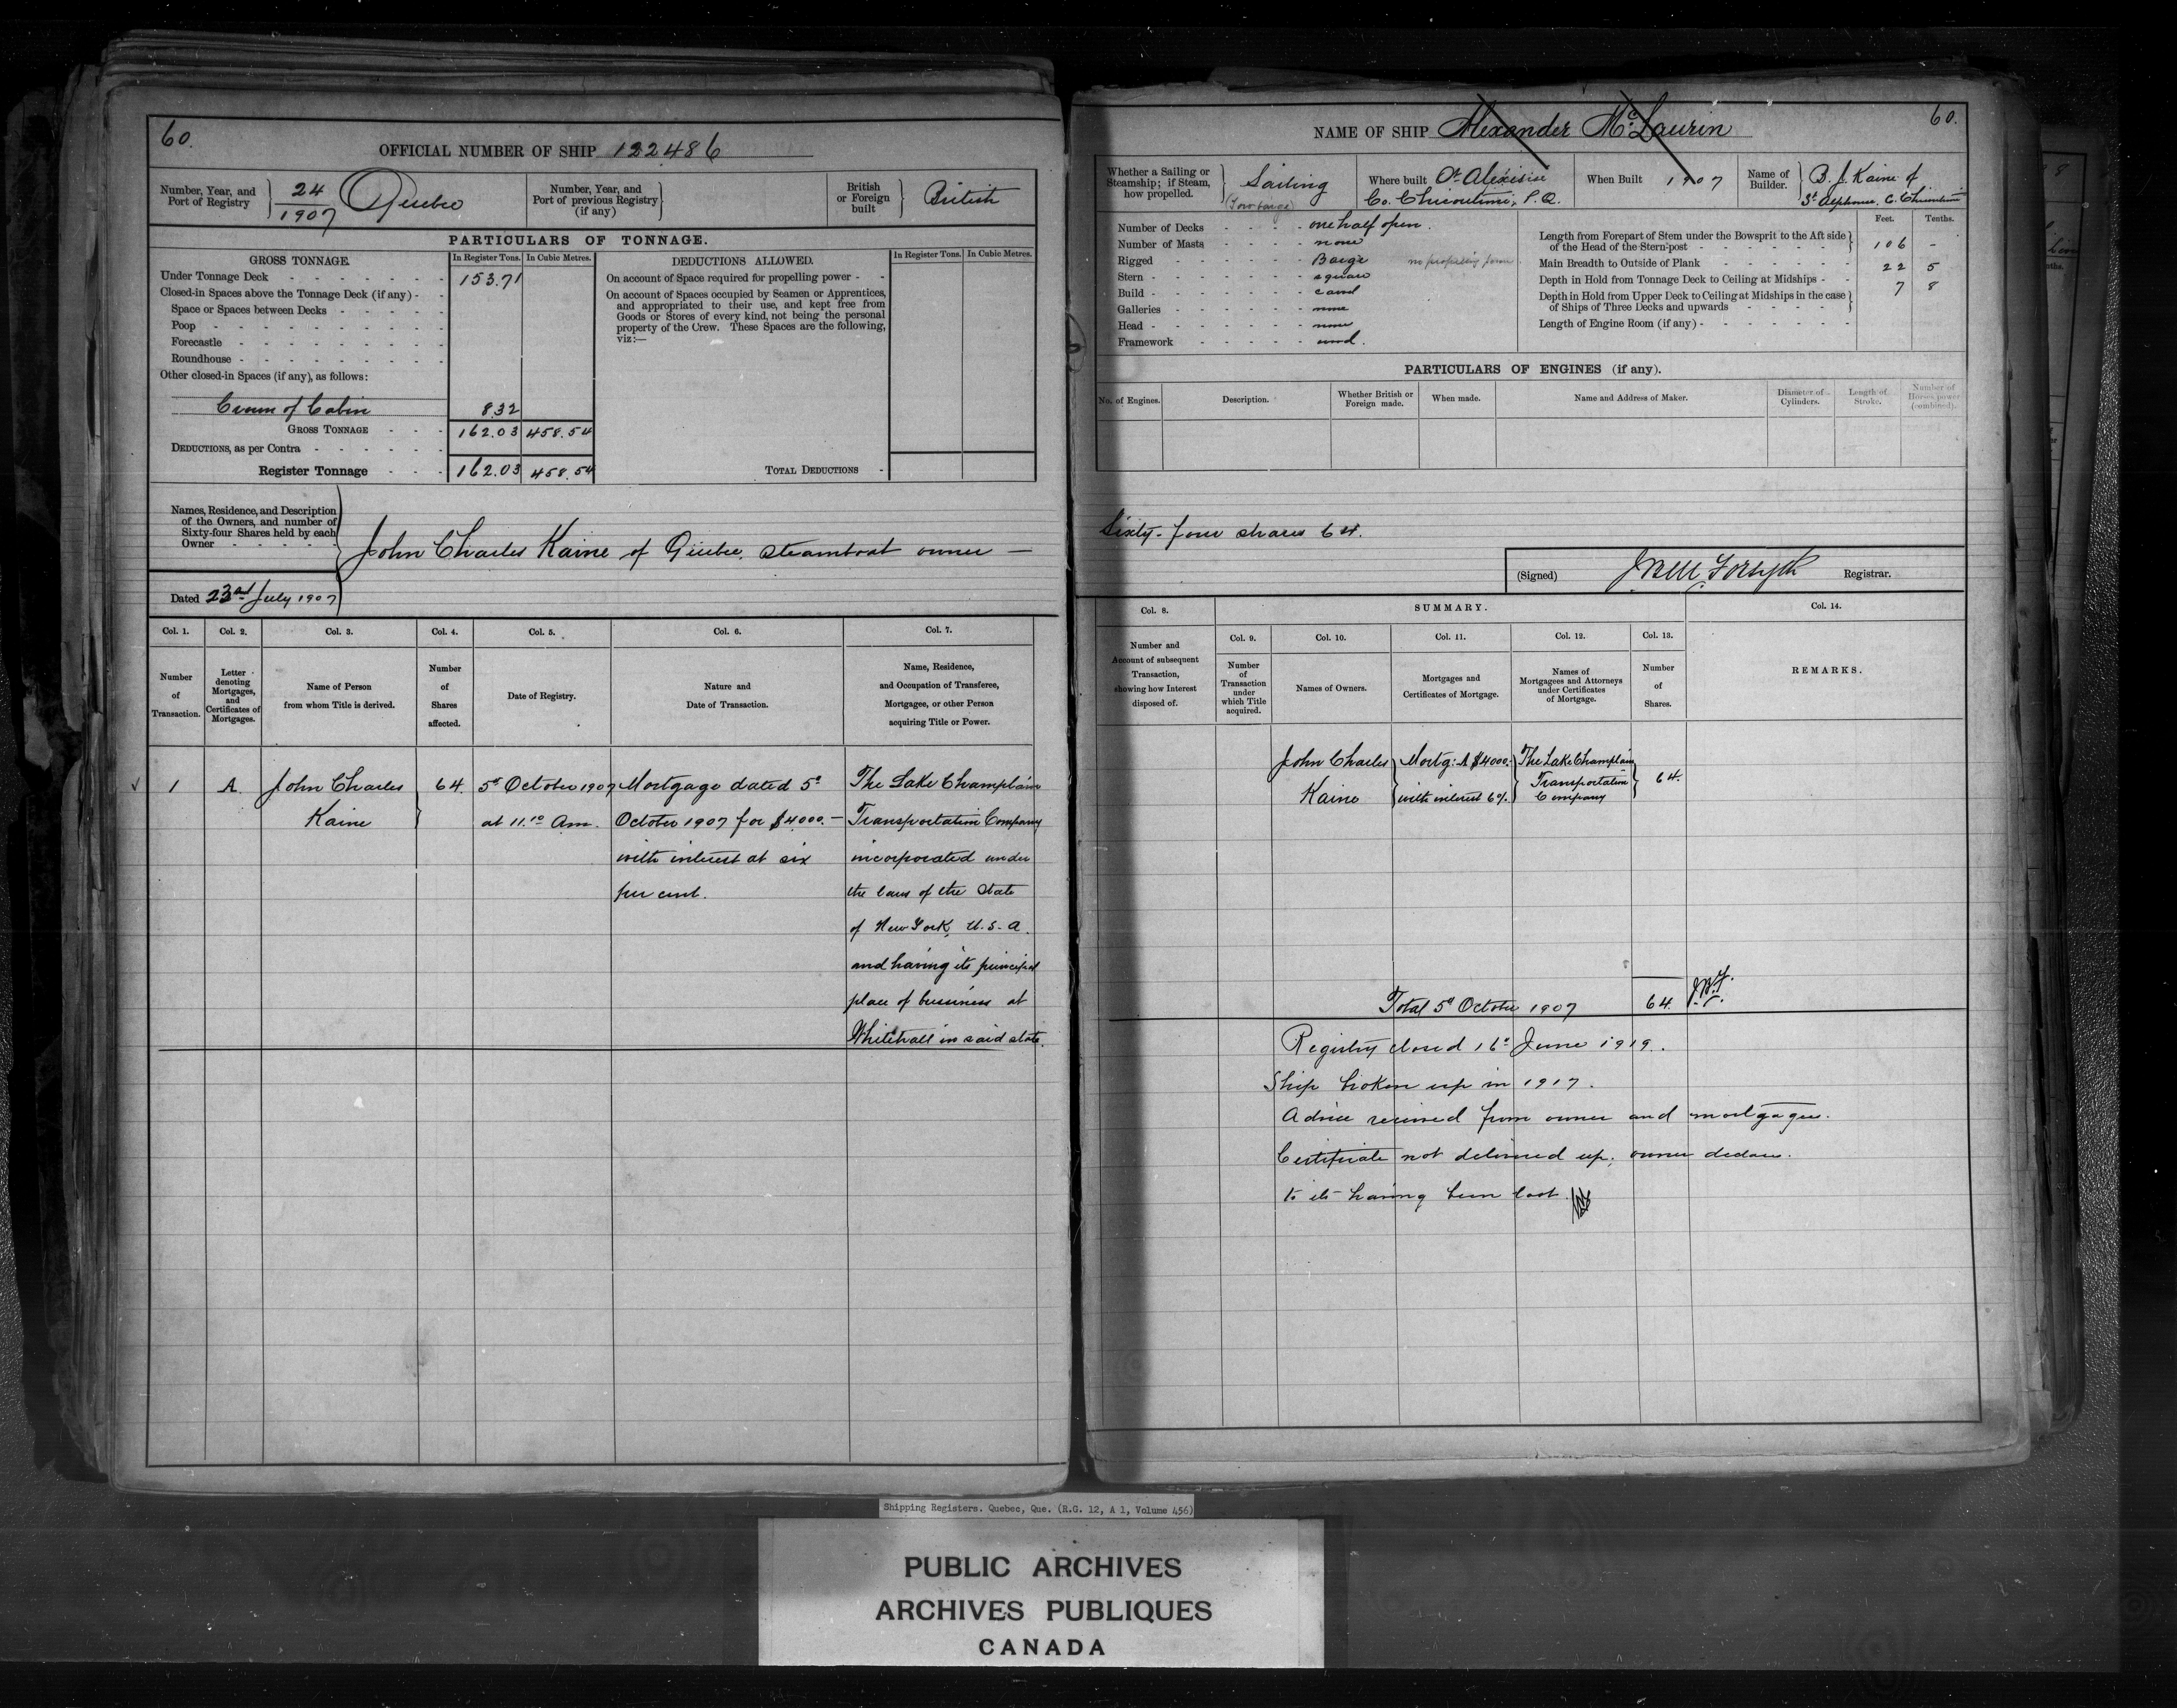 60.
OFFICIAL NUMBER OF SHIP 122486
Number, Year, and Port of Registry } 24/1907 Quebec
Number, Year, and Port of previous Registry (if any) }
British or Foreign built } British
PARTICULARS OF TONNAGE.
GROSS TONNAGE. In Register Tons. In Cubic Metres.
Under Tonnage Deck 153.71
Closed-in Spaces above the Tonnage Deck (if any)
Space or Spaces between Decks
Poop
Forecastle
Roundhouse
Other closed-in Spaces (if any), as follows:
Crown of Cabin 8.32
GROSS TONNAGE 162.03 458.54
DEDUCTIONS, as per Contra
Register Tonnage 162.03 458.54
DEDUCTIONS ALLOWED. In Register Tons. In Cubic Metres.
On account of Space required for propelling power
On account of Spaces occupied by Seamen or Apprentices,
and appropriated to their use, and kept free from
Goods or Stores of every kind, not being the personal
property of the Crew. These Spaces are the following,
viz:—
TOTAL DEDUCTIONS
Names, Residence, and Description
of the Owners, and number of
Sixty-four Shares held by each
Owner
John Charles Kaine of Quebec, steamboat owner —
Dated 23rd July 1907
Col. 1. Col. 2. Col. 3. Col. 4. Col. 5. Col. 6. Col. 7.
Number of Transaction.
Letter denoting Mortgages, and Certificates of Mortgages.
Name of Person from whom Title is derived.
Number of Shares affected.
Date of Registry.
Nature and Date of Transaction.
Name, Residence, and Occupation of Transferee, Mortgagee, or other Person acquiring Title or Power.
1 A. John Charles 64. 5th October 1907 Mortgage dated 5th The Lake Champlain
Kaine at 11.10 Am. October 1907 for $4000.— Transportation Company
with interest at six incorporated under
per cent. the laws of the State
of New York, U.S.A.
and having its principal
place of business at
Whitehall in said state.
60.
NAME OF SHIP Alexander McLaurin
Whether a Sailing or Steamship; if Steam, how propelled. } Sailing
(Tow barge)
Where built St. Alexis
Co. Chicoutimi, P.Q.
When Built 1907
Name of Builder. } B. J. Kaine of
St. Alphonse, C. Chicoutimi
Number of Decks one half open.
Number of Masts none
Rigged Barge no propelling power
Stern square
Build carvel
Galleries none
Head none
Framework wood.
Feet. Tenths.
Length from Forepart of Stem under the Bowsprit to the Aft side
of the Head of the Stern-post 106 -
Main Breadth to Outside of Plank 22 5
Depth in Hold from Tonnage Deck to Ceiling at Midships 7 8
Depth in Hold from Upper Deck to Ceiling at Midships in the case
of Ships of Three Decks and upwards
Length of Engine Room (if any)
PARTICULARS OF ENGINES (if any).
No. of Engines. Description. Whether British or Foreign made. When made. Name and Address of Maker. Diameter of Cylinders. Length of Stroke. Number of Horses power (combined).
Sixty-four shares 64.
(Signed) Forsyth Registrar.
Col. 8. SUMMARY. Col. 14.
Col. 9. Col. 10. Col. 11. Col. 12. Col. 13.
Number and Account of subsequent Transaction, showing how Interest disposed of.
Number of Transaction under which Title acquired.
Names of Owners.
Mortgages and Certificates of Mortgage.
Names of Mortgagees and Attorneys under Certificates of Mortgage.
Number of Shares.
REMARKS.
John Charles Mortg: A $4000.- The Lake Champlain
Transportation 64.
Kaine with interest 6%. Company
Total 5th October 1907 64.
Registry closed 16th June 1919.
Ship broken up in 1917.
Advice received from owner and mortgagee.
Certificate not delivered up; owner declares.
to its having been lost.
Shipping Registers. Quebec, Que. (R.G. 12, A 1, Volume 456)
PUBLIC ARCHIVES
ARCHIVES PUBLIQUES
CANADA